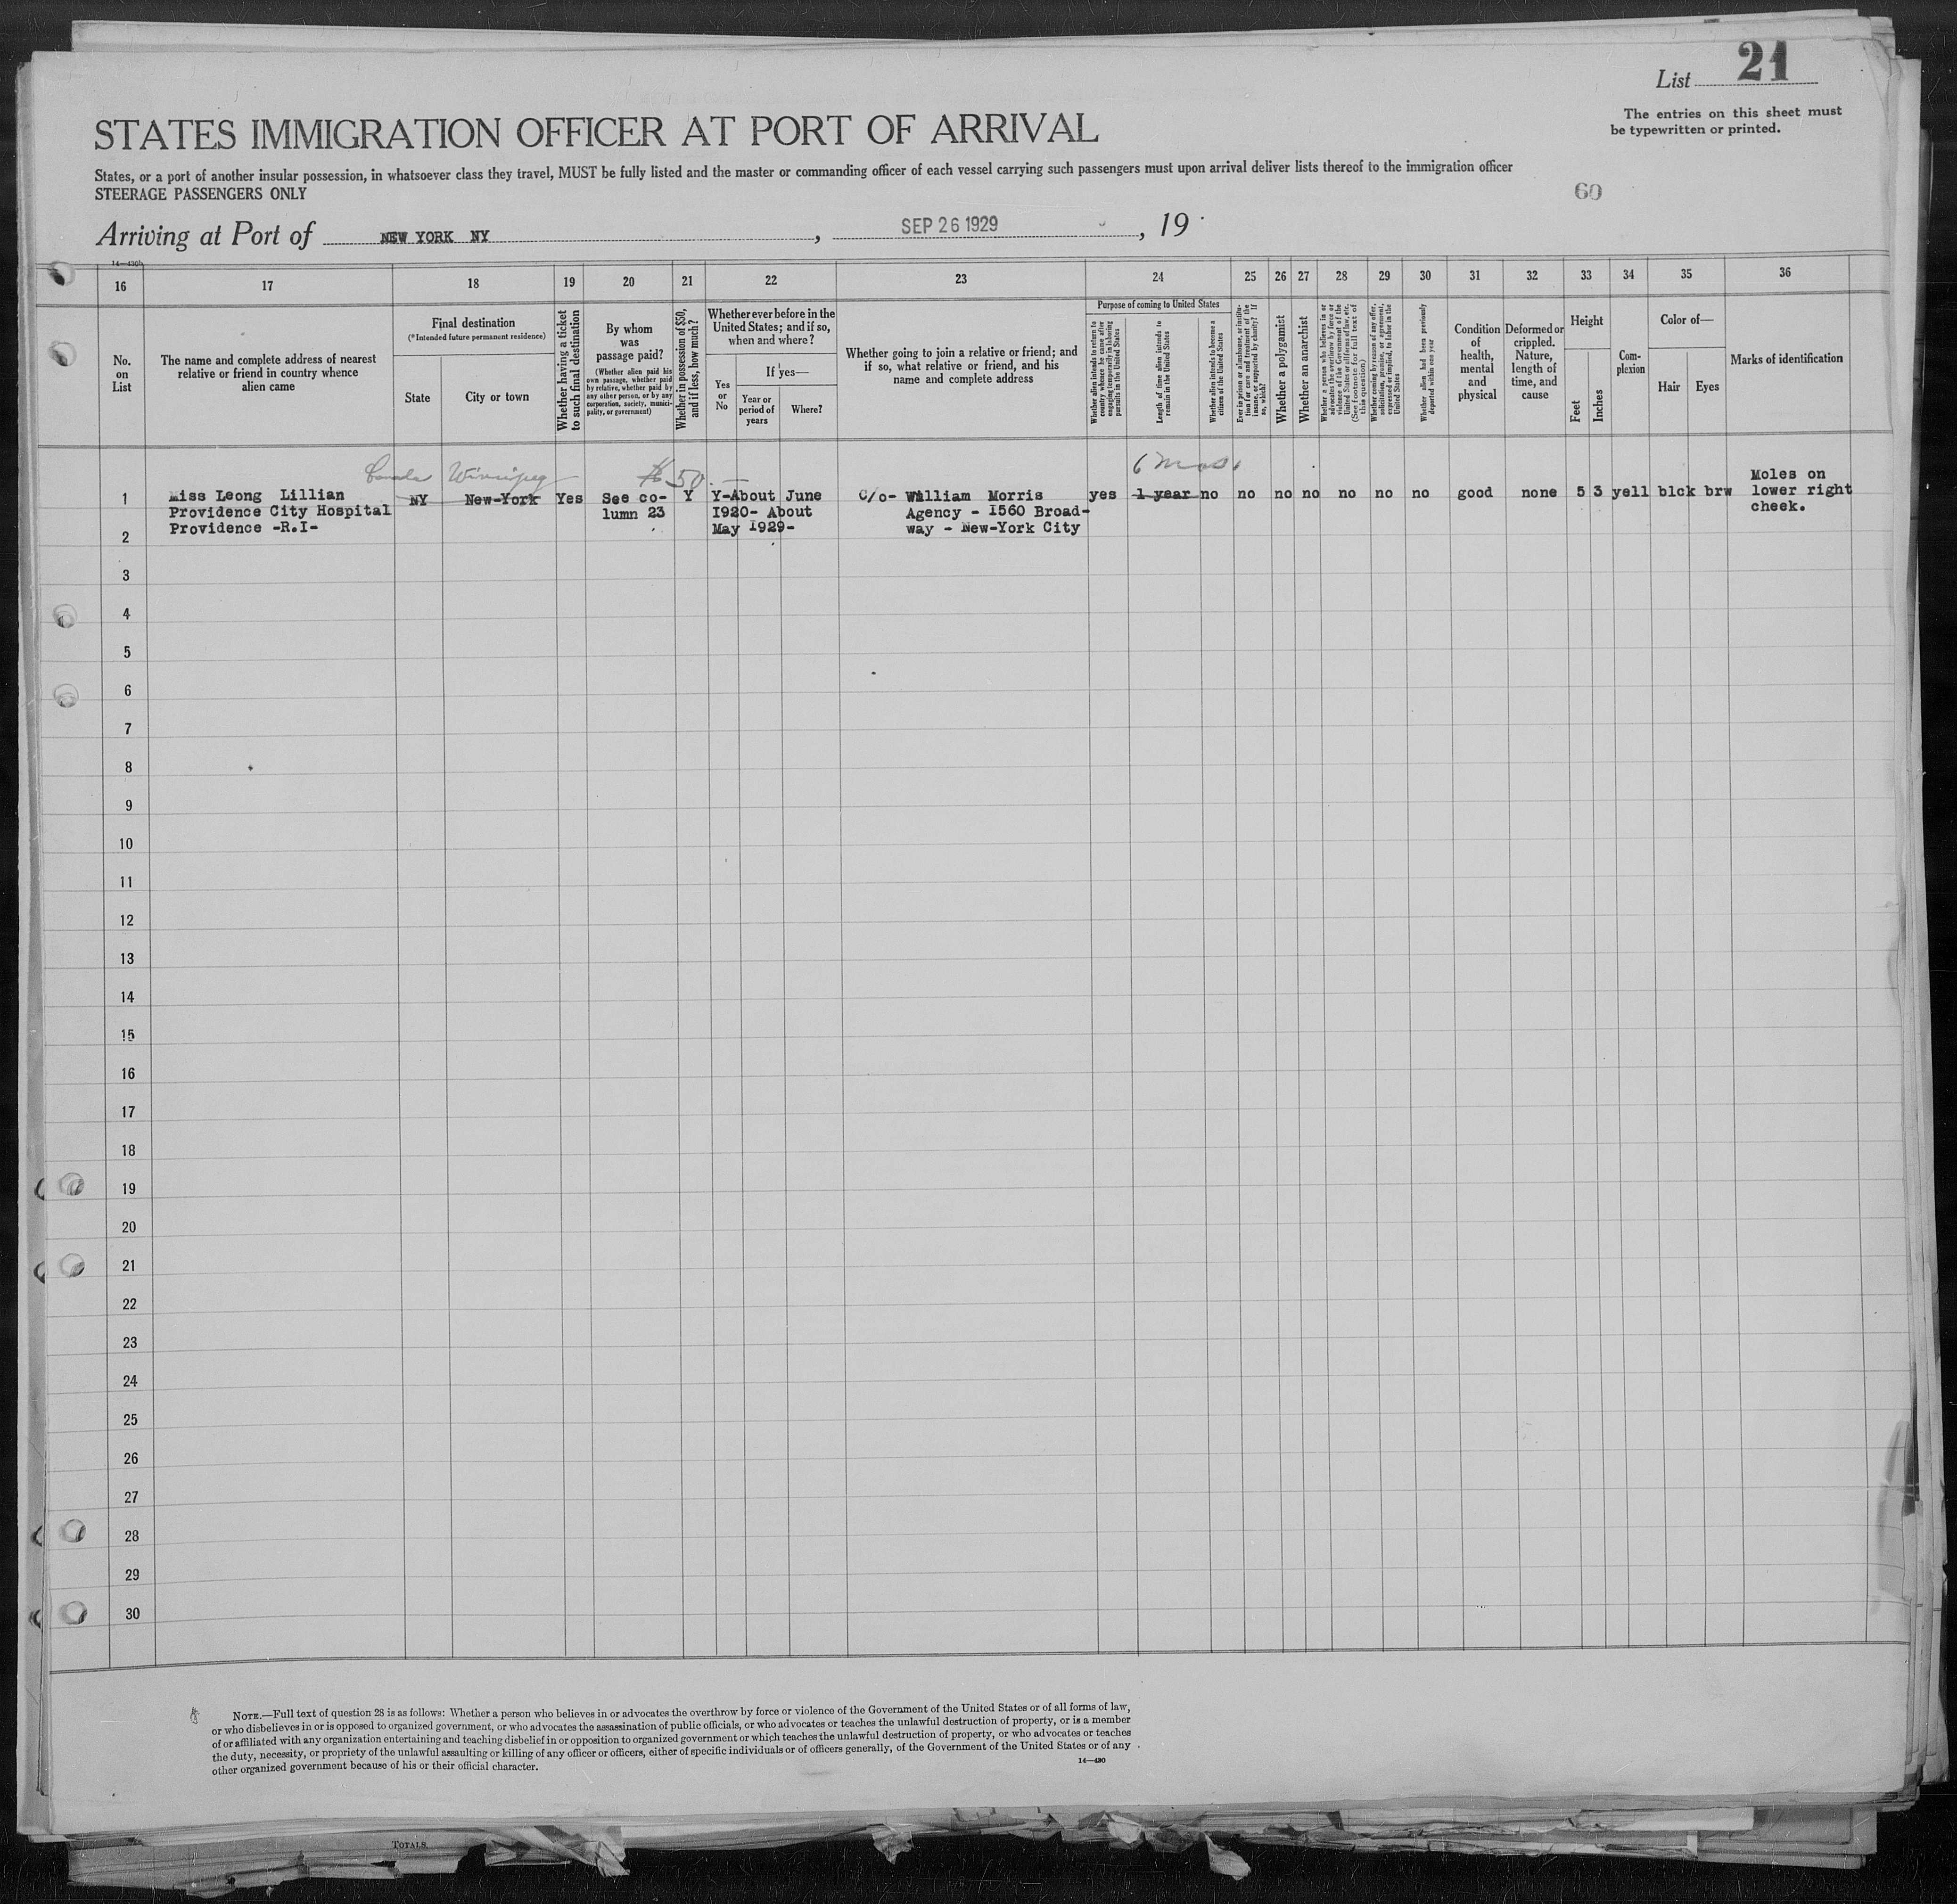 List 21
The entries on this sheet must
be typewritten or printed.
STATES IMMIGRATION OFFICER AT PORT OF ARRIVAL
States, or a port of another insular possession, in whatsoever class they travel, MUST be fully listed and the master or commanding officer of each vessel carrying such passengers must upon arrival deliver lists thereof to the immigration officer
STEERAGE PASSENGERS ONLY
60
Arriving at Port of NEW YORK NY, SEP 26 1929, 19
14—430b
16 17 18 19 20 21 22 23 24 25 26 27 28 29 30 31 32 33 34 35 36
No.
on
List
The name and complete address of nearest
relative or friend in country whence
alien came
Final destination
(*Intended future permanent residence)
State
City or town
Whether having a ticket
to such final destination
By whom
was
passage paid?
(Whether alien paid his
own passage, whether paid
by relative, whether paid by
any other person, or by any
corporation, society, munici-
pality, or government)
Whether in possession of $50,
and if less, how much?
Whether ever before in the
United States; and if so,
when and where?
Yes
or
No
If yes—
Year or
period of
years
Where?
Whether going to join a relative or friend; and
if so, what relative or friend, and his
name and complete address
Purpose of coming to United States
Whether alien intends to return to
country whence he came after
engaging temporarily in laboring
pursuits in the United States
Length of time alien intends to
remain in the United States
Whether alien intends to become a
citizen of the United States
Ever in prison or almshouse, or institu-
tion for care and treatment of the
insane, or supported by charity? If
so, which?
Whether a polygamist
Whether an anarchist
Whether a person who believes in or
advocates the overthrow by force or
violence of the Government of the
United States or all forms of law, etc.
(See footnote for full text of
this question.)
Whether coming by reason of any offer,
solicitation, promise, or agreement,
expressed or implied, to labor in the
United States
Whether alien had been previously
deported within one year
Condition
of
health,
mental
and
physical
Deformed or
crippled.
Nature,
length of
time, and
cause
Height
Feet
Inches
Com-
plexion
Color of—
Hair
Eyes
Marks of identification
Canada Winnipeg $50.— 6 mos.
1 Miss Leong Lillian NY New-York Yes See co- Y Y-About June C/o- William Morris yes 1 year no no no no no no no good none 5 3 yell blck brw Moles on
Providence City Hospital lumn 23 1920- About Agency - 1560 Broad- lower right
Providence -R.I- May 1929- way - New-York City cheek.
2
3
4
5
6
7
8
9
10
11
12
13
14
15
16
17
18
19
20
21
22
23
24
25
26
27
28
29
30
NOTE.—Full text of question 28 is as follows: Whether a person who believes in or advocates the overthrow by force or violence of the Government of the United States or of all forms of law,
or who disbelieves in or is opposed to organized government, or who advocates the assassination of public officials, or who advocates or teaches the unlawful destruction of property, or is a member
of or affiliated with any organization entertaining and teaching disbelief in or opposition to organized government or which teaches the unlawful destruction of property, or who advocates or teaches
the duty, necessity, or propriety of the unlawful assaulting or killing of any officer or officers, either of specific individuals or of officers generally, of the Government of the United States or of any
other organized government because of his or their official character.
14—430
TOTALS